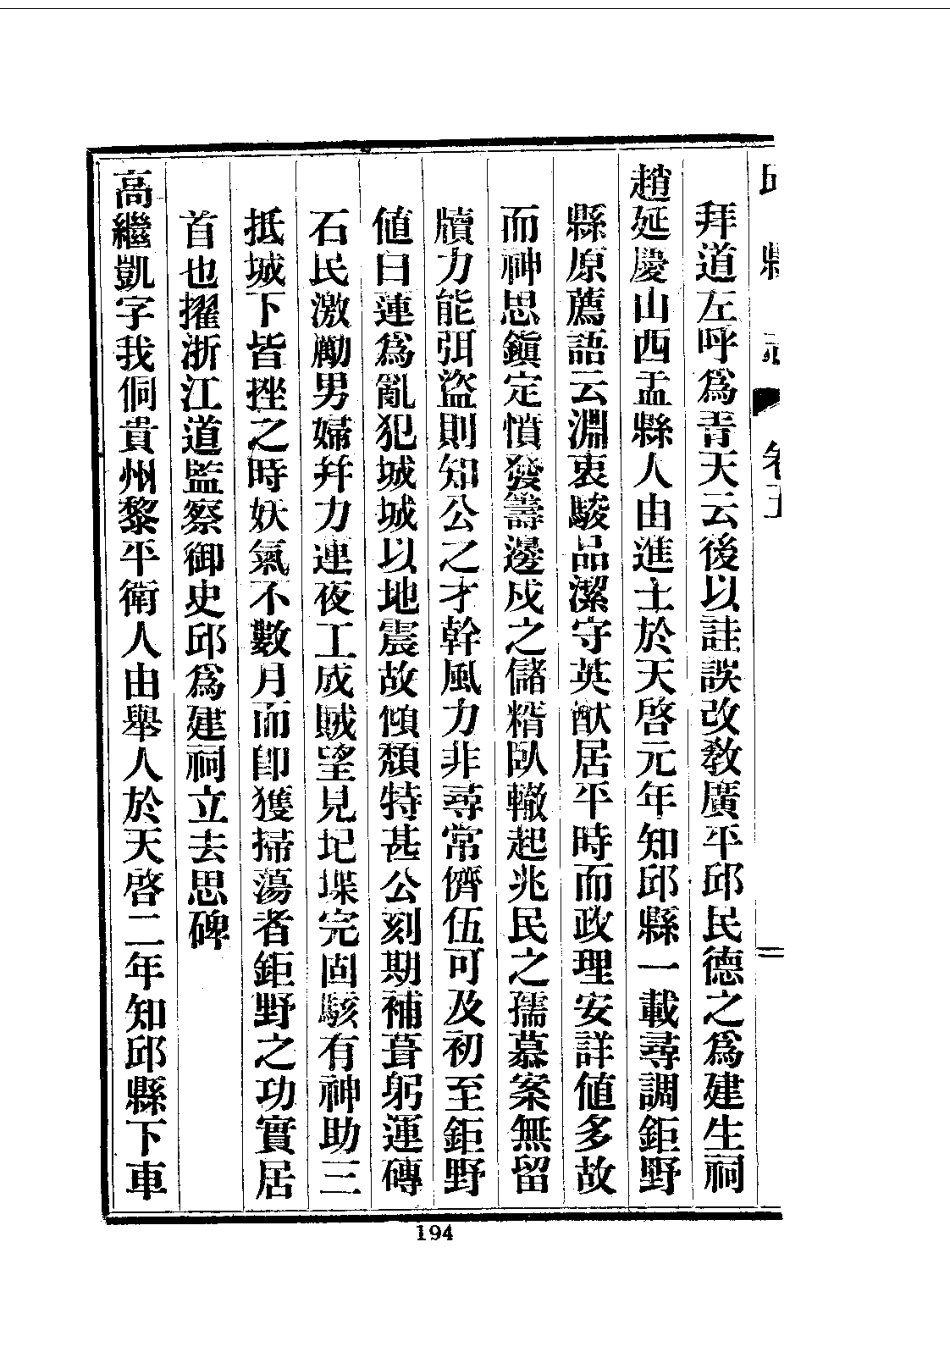 邱縣志 卷五 二
拜道左呼爲青天云後以詿誤改敎廣平邱民德之爲建生祠
趙延慶山西盂縣人由進士於天啓元年知邱縣一載尋調鉅野
縣原薦語云淵衷駿品潔守英猷居平時而政理安詳値多故
而神思鎭定憤發籌邊戍之儲糈臥轍起兆民之孺慕案無留
牘力能弭盜則知公之才幹風力非尋常儕伍可及初至鉅野
値白蓮爲亂犯城城以地震故傾頹特甚公刻期補葺躬運磚
石民激勵男婦幷力連夜工成賊望見圮堞完固駭有神助三
抵城下皆挫之時妖氣不數月而卽獲掃蕩者鉅野之功實居
首也擢浙江道監察御史邱爲建祠立去思碑
高繼凱字我侗貴州黎平衛人由舉人於天啓二年知邱縣下車
194